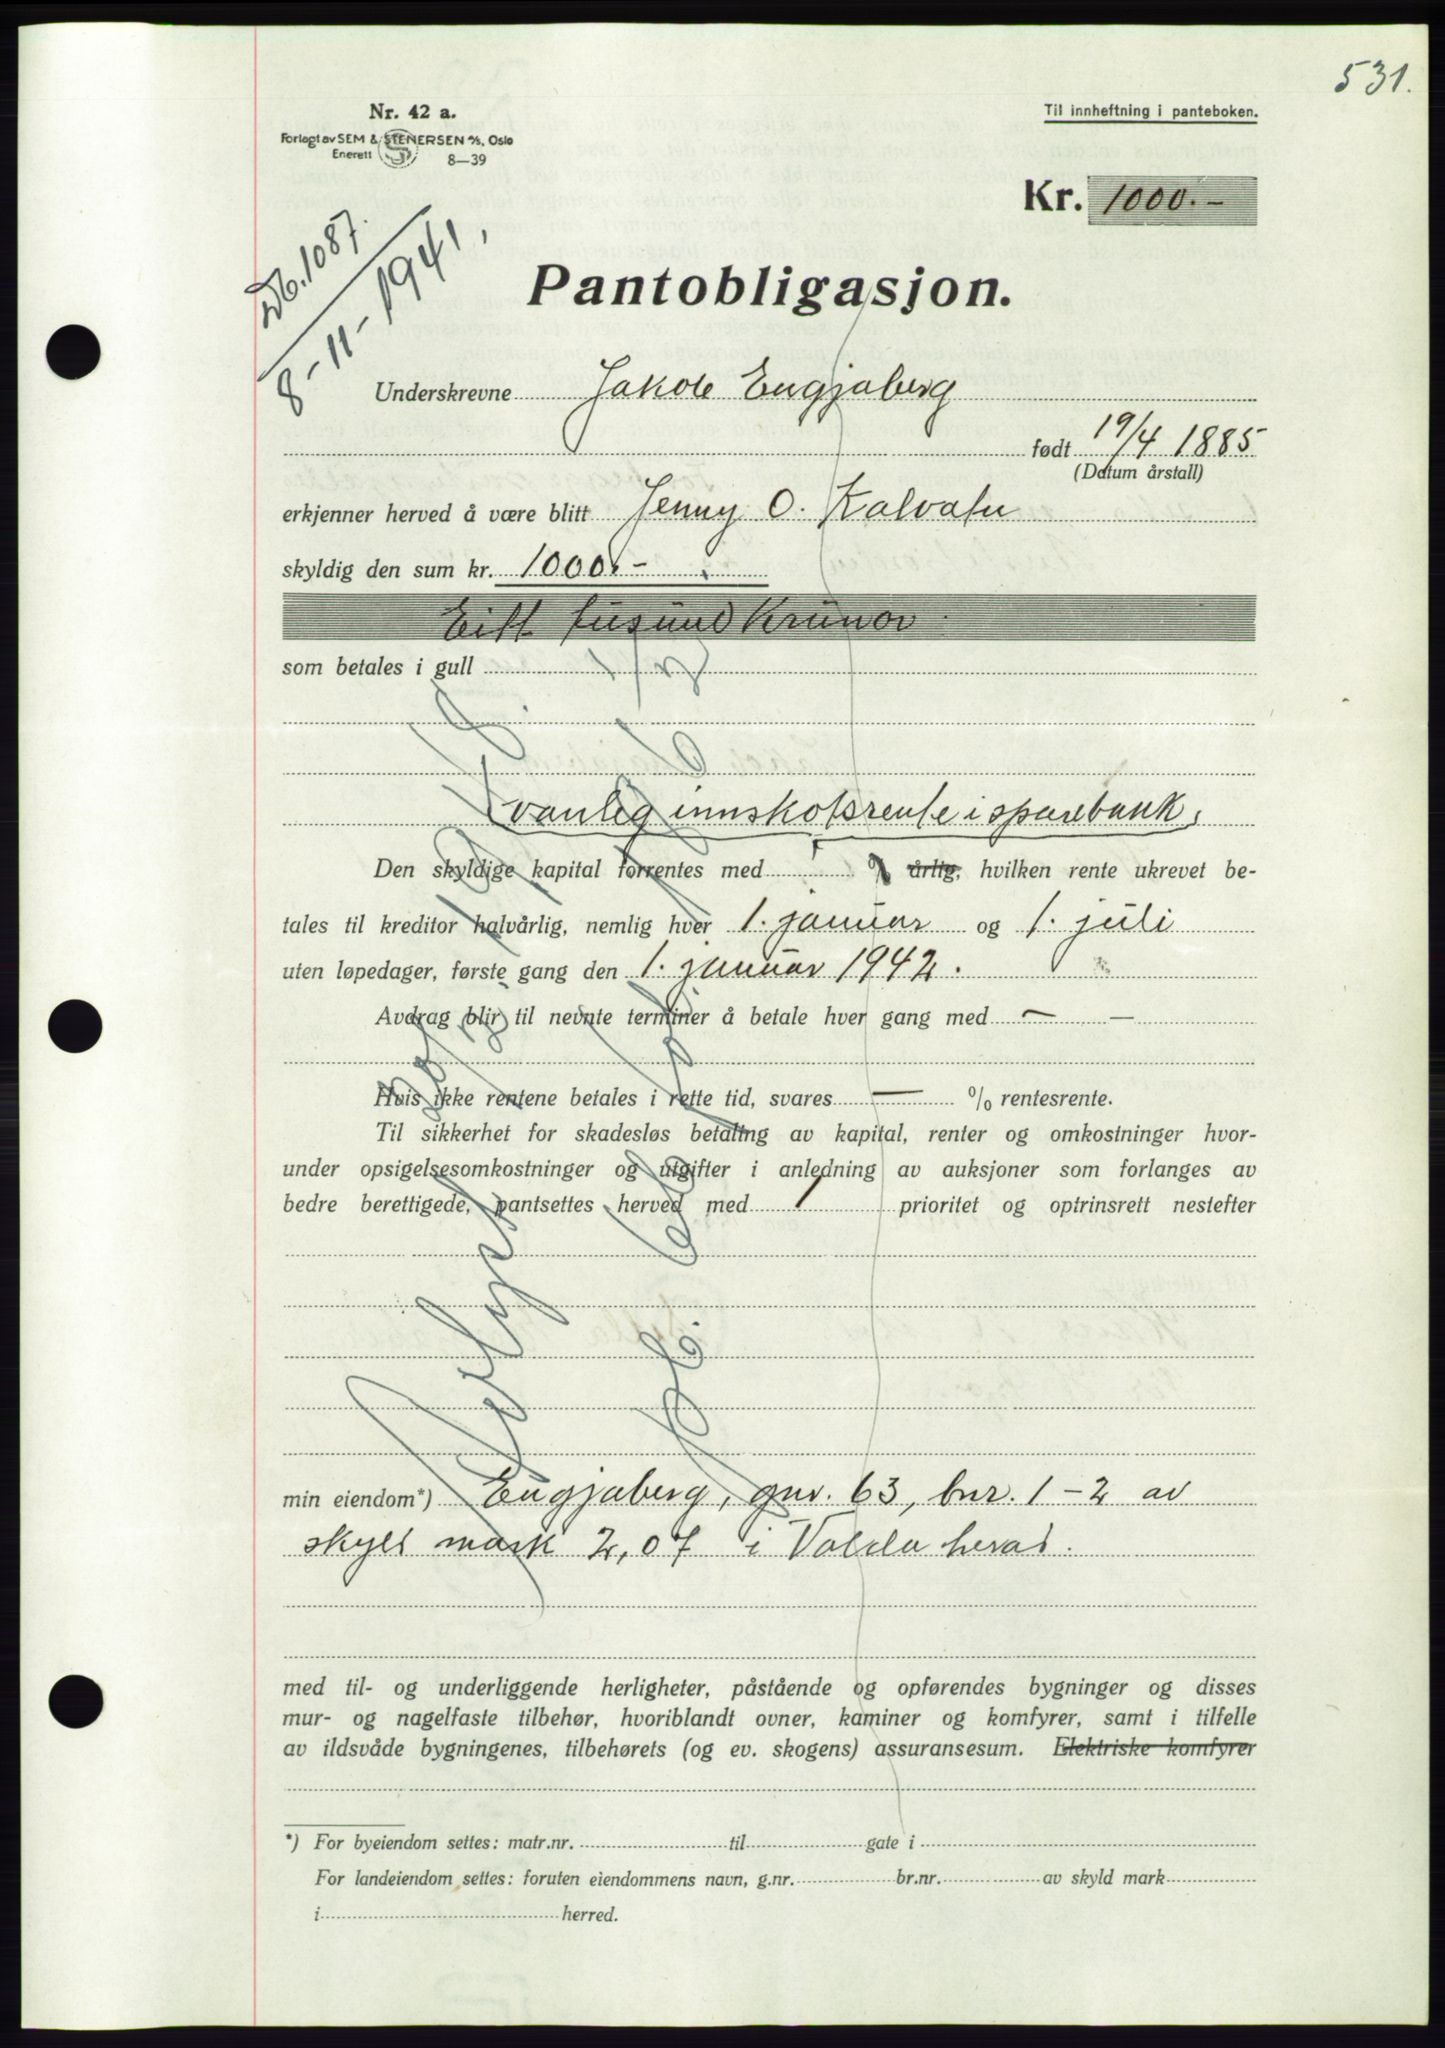 531.
Nr. 42 a.
Forlagt av SEM & STENERSEN A/S, Oslo
Enerett 8—39
Til innheftning i panteboken.
Kr. 1000.-
Db. 1087.
8-11-1941,
Pantobligasjon.
Underskrevne Jakob Engjaberg
født 19/4 1885
(Datum årstall)
erkjenner herved å være blitt Jenny O. Kalvatn
skyldig den sum kr. 1000.-
Eitt tusund krunor
som betales i gull
vanleg innskotsrente i sparebank,
Den skyldige kapital forrentes med % årlig, hvilken rente ukrevet be-
tales til kreditor halvårlig, nemlig hver 1. januar og 1. juli
uten løpedager, første gang den 1. januar 1942.
Avdrag blir til nevnte terminer å betale hver gang med — —
Hvis ikke rentene betales i rette tid, svares — % rentesrente.
Til sikkerhet for skadesløs betaling av kapital, renter og omkostninger hvor-
under opsigelsesomkostninger og utgifter i anledning av auksjoner som forlanges av
bedre berettigede, pantsettes herved med 1 prioritet og optrinsrett nestefter
Avlyst
min eiendom*) Engjaberg, gnr. 63, bnr. 1-2 av
skyld mark 2,07 i Volda herad.
med til- og underliggende herligheter, påstående og opførendes bygninger og disses
mur- og nagelfaste tilbehør, hvoriblandt ovner, kaminer og komfyrer, samt i tilfelle
av ildsvåde bygningenes, tilbehørets (og ev. skogens) assuransesum. Elektriske komfyrer
*) For byeiendom settes: matr.nr. til gate i
For landeiendom settes: foruten eiendommens navn, g.nr. br.nr. av skyld mark
i herred.